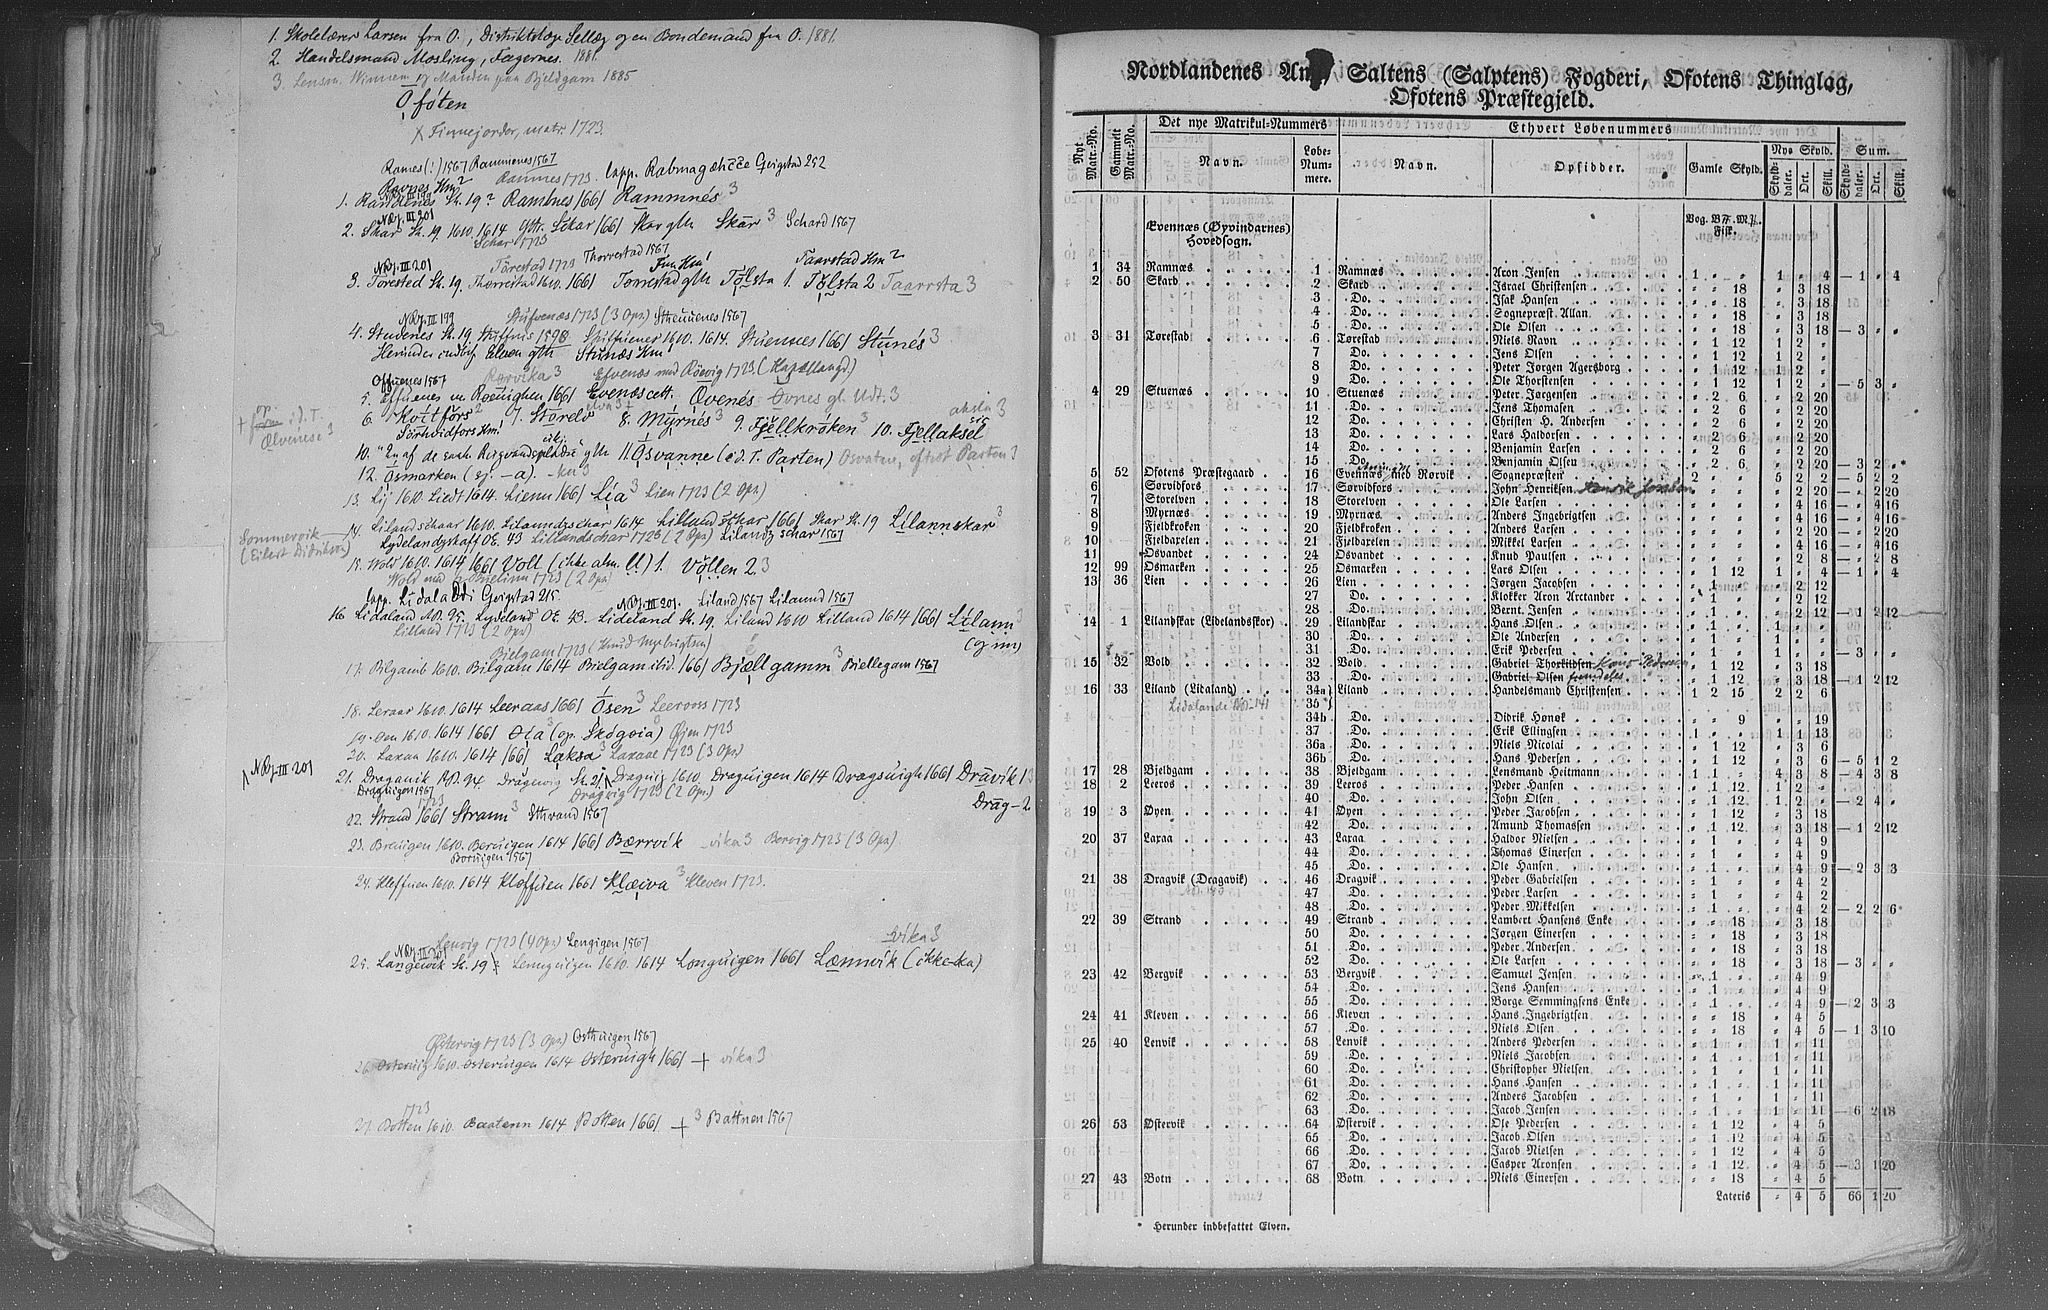 1. Skolelærer Larsen fra O., Distriktslæge Selleg og en Bondemand fra O. 1881.
2. Handelsmand Mosling, Fagernes. 1881.
3. Lensm. Winnem og Manden paa Bjeldgam 1885
Ofoten
x Finnejorder, matr. 1723.
Rames (!) 1567 Rammenes 1567
Ramnes 1723. lapp. Qvigstad 252
1. Sk. 19? Rambnes 1661 Rammnés 3
NRJ. III 201
2. Skar Sk. 19. 1610. 1614 Skar 1661 Skar gth Skar 3 Schard 1567
Schar 1723
NRJ. III 201 Törestad 1723 Thorrestad 1567 Taarstad Hm 2
3. Torested Sk. 19. Thorrestad 1610. 1661 Torrestad gth Tölsta 1. Tölsta 2 Taarrsta 3
NRJ. III 199 Stufvenæs 1723 (3 Opr.) 1567
4. Studenes Sk. 19 1610. 1614. Stuennes 1661 Stunés 3
Herunder indbef. Elven gth Stunæs Hm
Offuenes 1567 Rørvika 3 Efvenæs med Röevig 1723.
5. 1661 Evenæs cett. Övenés Övnes gl. Udt. 3
6. Kvitfors 2 7. Storelv 8. Myrnés 3 9. Fjellkroken 3 10. Fjellaksel
11 Osvanne (i d. T. Parten) Osvatne, oftest Parten 3
12. Osmarken (ej -a).
13. Lij 1610. Liedt 1614. Lienn 1661 Lia 3 Lien 1723 (2 Opr.)
Sommervik
14. Lilandschaar 1610. Lilaundzschar 1614 Lillandschar 1661 Skar Sk. 19 Lilannskar 3
OE. 43 Lillandschar 1723 (2 Opr.) 1567
15. Wold 1610. 1614 1661 Voll (ikke alm. ll) 1. Vøllen 2.3
lapp. Qvigstad 215.
NRJ. III 201. Liland 1567 Lilaund 1567
16 Lidaland AB. 95. Lydeland OE. 43. Lideland Sk. 19. Liland 1610 Lilland 1614 1661 Lilann 3
Lilland 1723 (2 Opr.) (og nn)
Bielgam 1723 (Knud Ingbrigtsen)
17. Bilgamb 1610. Bilgam 1614 Bielgam ibid. 1661 Bjællgamm 3 Biellegam 1567
18. Leraar 1610. 1614 Leeraas 1661 Ösen 3 Leeroos 1723
19. Øen 1610. 1614 1661 Øia 3 (op. Skogøia) Øjen 1723
20. Laxaa 1610. 1614 1661 Laksa 3 Laxaae 1723 (3 Opr.)
NRJ. III 201
21. Draganik AB. 94. Dragewig Sk. 21. Draguig 1610. Draguigen 1614 Dragsuigh 1661 Dravik 1 3
Draguigen 1567 Dragvig 1723 (2 Opr.) Drag- 2
1723
22. Strand 1661 Strann 3 Sthrand 1567
23. Breuigen 1610. Beruigen 1614 1661 Bærrvik -vika 3 Bervig 1723 (3 Opr.)
Boruigen 1567
24. Kleffuen 1610. 1614 Kloffuen 1661 Klæiva 3 Kleven 1723.
NRJ. III 201 Lenvig 1723 (4 Opr.) Lengigen 1567 -vika 3
25. Langevik Sk. 19 Lenguigen 1610. 1614 Longuigen 1661 Lænnvik (ikke -ka)
Østervig 1723 (3 Opr.) Østhuigen 1567
26. Osteruig 1610. Osteruigen 1614 Osteruigh 1661 + vika 3
1723
27. Botten 1610. Baatenn 1614 Botten 1661 + 3 Battnen 1567
Nordlandenes Amt, Saltens (Salptens) Fogderi, Ofotens Thinglag,
Ofotens Præstegjeld.
Nyt Matr.-No. Gammelt Matr.-No. Det nye Matrikul-Nummers Navn. Løbe-Nummere. Ethvert Løbenummers Navn. Opsidder. Gamle Skyld. Nye Skyld. Skylddaler. Ort. Skill. Sum. Skylddaler. Ort. Skill.
Vog. BF. Mk. Fisk.
Evennæs (Øyvindarnes) Hovedsogn.
1 34 Ramnæs 1 Ramnæs Aron Jensen 1 " " 1 " 4 — 1 " 4
2 50 Skard 2 Skard Israel Christensen " " 18 " 3 18
3 Do. Isak Hansen " " 18 " 3 18
4 Do. Sognepræst. Allan " " 18 " 3 18
5 Do. Ole Olsen " " 18 " 3 18 — 3 " "
3 31 Tørestad 6 Tørestad Niels Ravn " 1 12 1 2 "
7 Do. Jens Olsen " 1 12 1 2 "
8 Do. Peter Jørgen Agersborg " 1 12 1 2 "
9 Do. Ole Thorstensen " 1 12 1 2 " — 5 3 "
4 29 Stuenæs 10 Stuenæs Peter Jørgensen " 2 6 " 2 20
11 Do. Jens Thomasen " 2 6 " 2 20
12 Do. Christen H. Andersen " 2 6 " 2 20
13 Do. Lars Haldorsen " 2 6 " 2 20
14 Do. Benjamin Larsen " 2 6 " 2 20
15 Do. Benjamin Olsen " 2 6 " 2 20 — 3 2 "
5 52 Ofotens Præstegaard 16 Evennæs med Rørvik Sognepræsten 2 " " 5 2 2 — 5 2 2
6 Sørvidfors 17 Sørvidfors John Henriksen " 2 20 — " 2 20
7 Storelven 18 Storelven Ole Larsen " 4 16 — " 4 16
8 Myrnæs 19 Myrnæs Anders Ingebrigtsen " 4 16 — " 4 16
9 Fjeldkroken 20 Fjeldkroken Anders Larsen " 2 20 — " 2 20
10 Fjeldaxelen 21 Fjeldaxelen Mikkel Larsen " 4 16 — " 4 16
11 Osvandet 24 Osvandet Knud Paulsen " 2 8 — " 2 8
12 99 Osmarken 25 Osmarken Lars Olsen " 1 12 1 " 4 — 1 " 4
13 36 Lien 26 Lien Jørgen Jacobsen " 1 " " 2 12
27 Do. Klokker Aron Arctander " 1 " " 2 12
28 Do. Bernt Jensen " 1 " " 2 12 — 1 2 12
14 1 Lilandskar (Lidelandsskor) 29 Lilandskar Hans Olsen " 1 " 1 " "
30 Do. Ole Andersen " 1 " 1 " "
31 Do. Erik Pedersen " 1 " 1 " " — 3 " "
15 32 Vold 32 Vold Gabriel Thorkildsen " 1 12 " 3 18
33 Do. Gabriel Olsen " 1 12 " 3 18 — 1 2 12
16 33 Liland (Lidaland) 34a 35 Liland Handelsmand Christensen 1 2 15 2 2 6
34b Do. Didrik Honok " " 9 " " 19
37 Do. Erik Ellingsen 1 " " 1 1 13
36a Do. Niels Nicolai " 1 12 " 3 6
36b Do. Hans Pedersen " 1 12 " 3 6 — 5 1 2
17 28 Bjeldgam 38 Bjeldgam Lensmand Heitmann 1 1 " 4 3 8 — 4 3 8
18 2 Leeros 39 Leeros Peder Hansen " 1 12 1 2 "
40 Do. John Olsen " 1 12 1 2 " — 2 4 "
19 3 Øyen 41 Øyen Peder Jacobsen " 1 12 " 3 18
42 Do. Amund Thomassen " 1 12 " 3 18 — 1 2 12
20 37 Laxaa 43 Laxaa Haldor Nielsen " 1 " " 4 9
44 Do. Thomas Einersen " 1 " " 4 9
45 Do. Ole Hansen " 1 " " 4 9 — 2 3 3
21 38 Dragvik (Dragavik) 46 Dragvik Peder Gabrielsen " 1 " " 4 2
47 Do. Peder Larsen " 1 " " 4 2
48 Do. Peder Mikkelsen " 1 " " 4 2 — 2 2 6
22 39 Strand 49 Strand Lambert Hansens Enke " " 18 " 3 18
50 Do. Jørgen Einersen " " 18 " 3 18
51 Do. Peder Andersen " " 18 " 3 18
52 Do. Ole Larsen " " 18 " 3 18 — 3 " "
23 42 Bergvik 53 Bergvik Samuel Jensen " 1 " " 4 9
54 Do. Jens Hansen " 1 " " 4 9
55 Do. Borge Semmingsens Enke " 1 " " 4 9 — 2 3 3
24 41 Kleven 56 Kleven Hans Ingebrigtsen " " 18 " 4 5
57 Do. Niels Olsen " " 18 " 4 5 — 1 3 10
25 40 Lenvik 58 Lenvik Anders Pedersen " 1 " 1 " 11
59 Do. Niels Jacobsen " 1 " 1 " 11
60 Do. Christopher Nielsen " 1 " 1 " 11
61 Do. Hans Hansen " 1 " 1 " 11
62 Do. Anders Jacobsen " 1 " 1 " 11
63 Do. Jacob Jensen " 1 " 1 " 11 — 6 2 18
26 53 Østervik 64 Østervik Ole Pedersen " 1 12 " 4 5
65 Do. Jacob Olsen " 1 12 " 4 5
66 Do. Jacob Nielsen " 1 12 " 4 5
67 Do. Casper Aronsen " 1 12 " 4 5 — 3 1 20
27 43 Botn 68 Botn Niels Einersen " " 18 " 4 5
Lateris " 4 5 66 1 20
* Herunder indbefattet Elven.